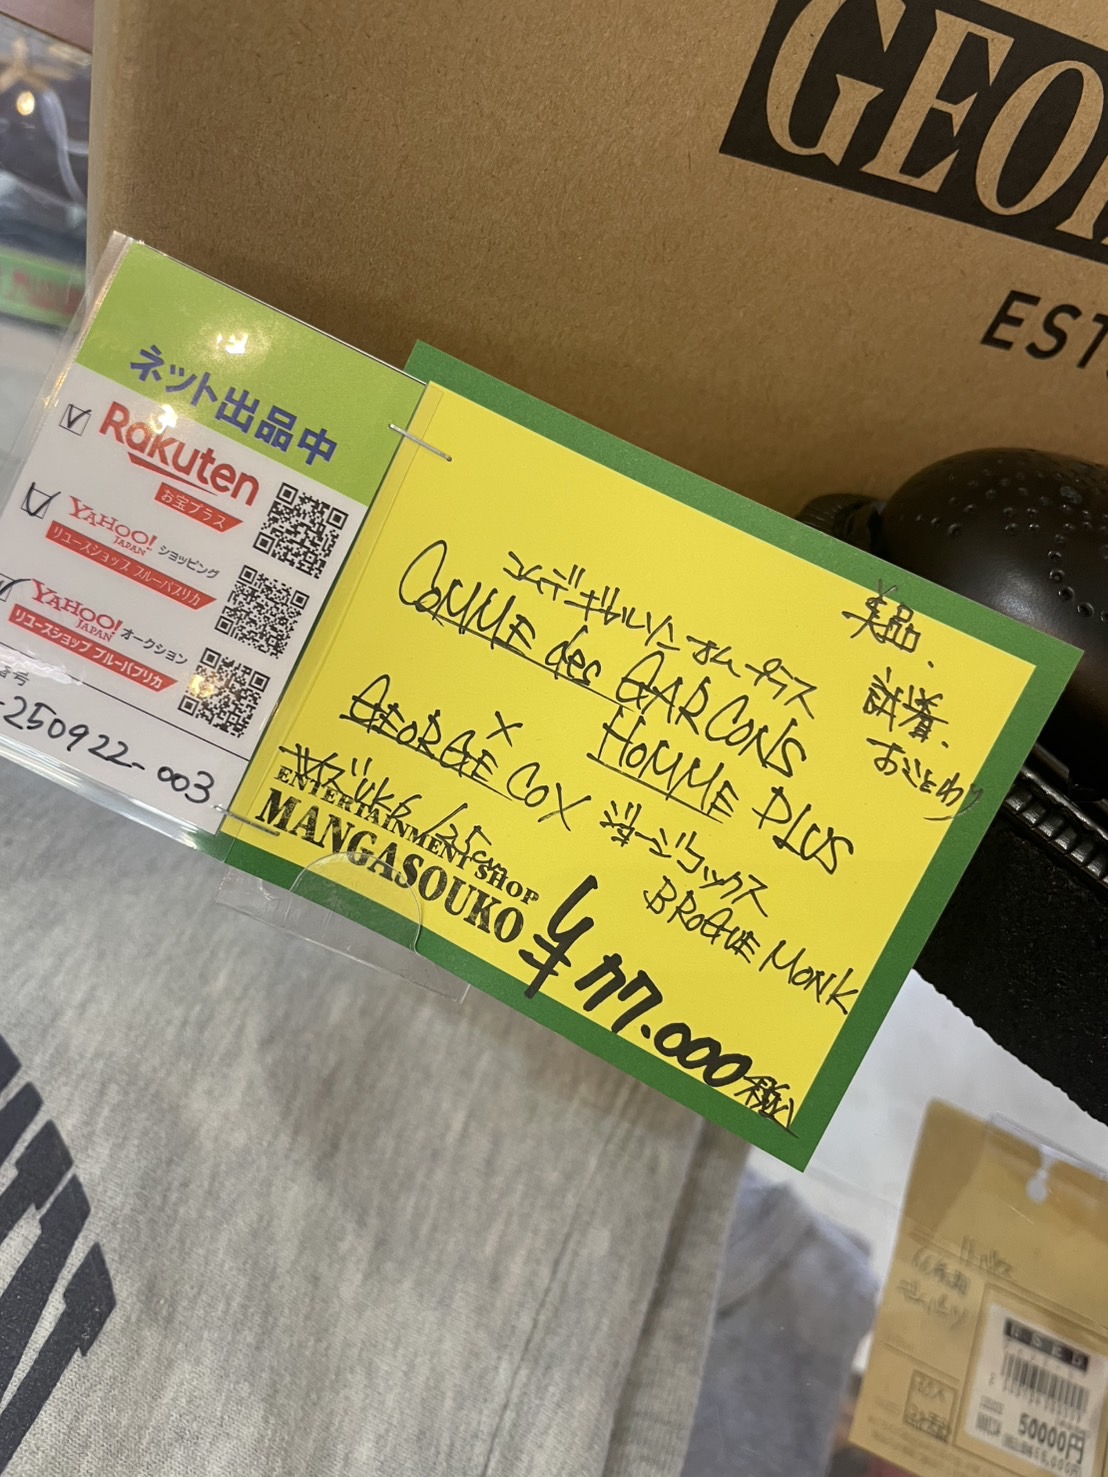 GEO
EST
ネット出品中
Rakuten
お宝プラス
YAHOO!
JAPAN ショッピング
リユースショップ ブルーパプリカ
YAHOO!
JAPAN オークション
リユースショップ ブルーパプリカ
番号
-250922-003
美品.
試着.
おことわり
コムデギャルソンオムプラス
COMME des GARCONS
HOMME PLUS
×
GEORGE COX ジョージコックス
BROGUE MONK
サイズUK6 /25cm
ENTERTAINMENT SHOP
MANGASOUKO
¥77.000税込
USED
50000円